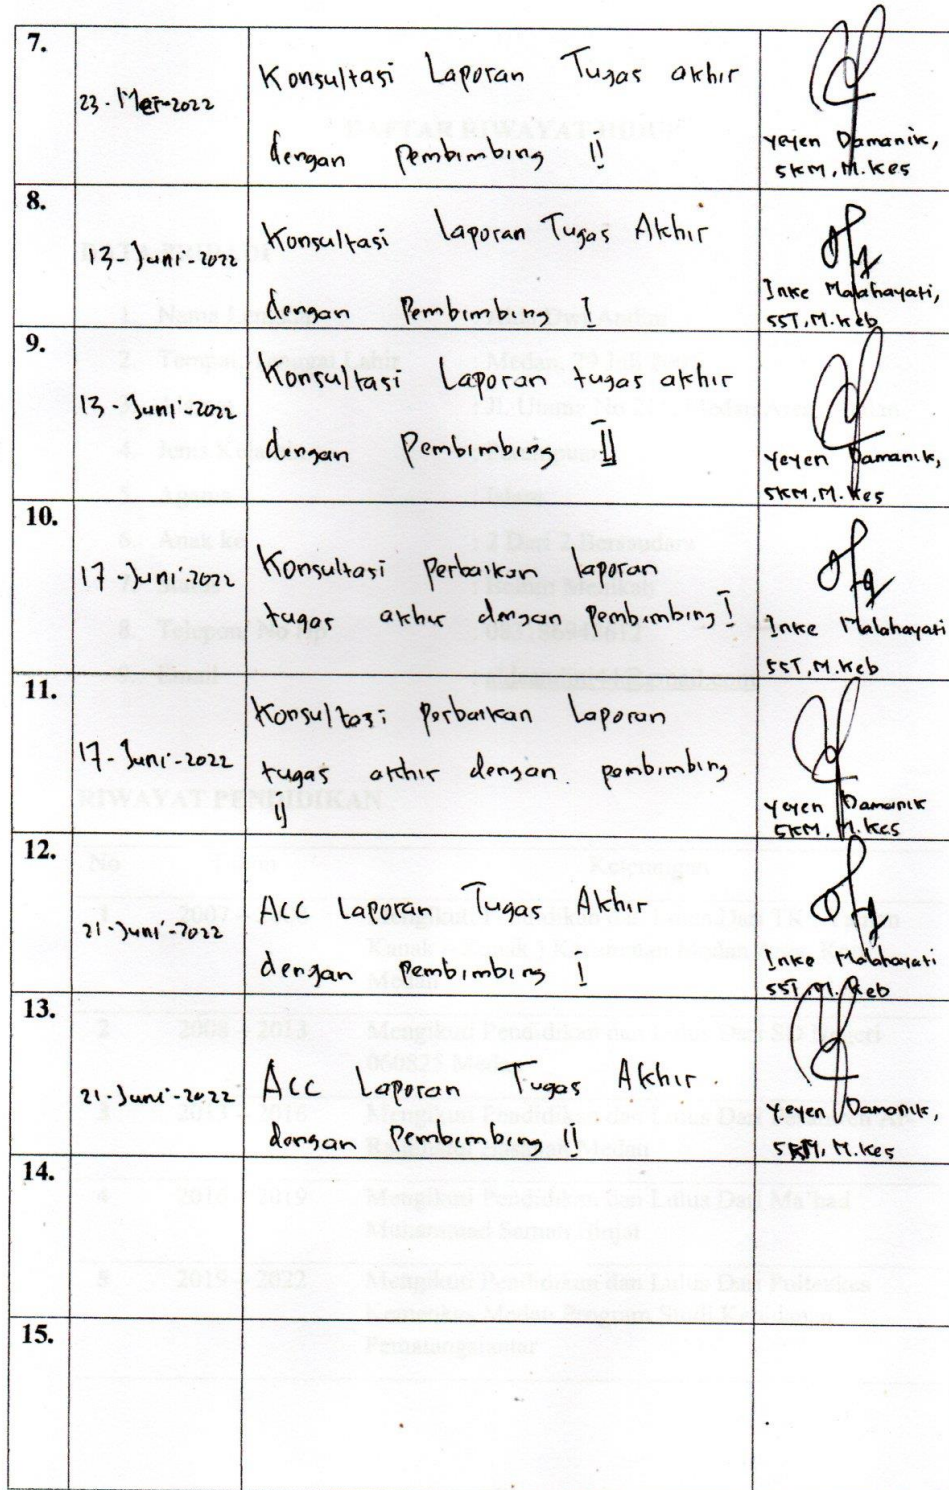 7.
23-Mei-2022
Konsultasi Laporan Tugas akhir
dengan pembimbing II
Yeyen Damanik,
SKM, M.Kes
8.
13-Juni-2022
Konsultasi Laporan Tugas Akhir
dengan Pembimbing I
Inke Malahayati,
SST, M.Keb
9.
13-Juni-2022
Konsultasi Laporan tugas akhir
dengan pembimbing II
Yeyen Damanik,
SKM, M.Kes
10.
17-Juni-2022
Konsultasi Perbaikan laporan
tugas akhir dengan pembimbing I
Inke Malahayati
SST, M.Keb
11.
17-Juni-2022
Konsultasi perbaikan Laporan
tugas akhir dengan pembimbing
II
Yeyen Damanik
SKM, M.Kes
12.
21-Juni-2022
ACC Laporan Tugas Akhir
dengan Pembimbing I
Inke Malahayati
SST, M.Keb
13.
21-Juni-2022
ACC Laporan Tugas Akhir
dengan Pembimbing II
Yeyen Damanik,
SKM, M.Kes
14.
15.